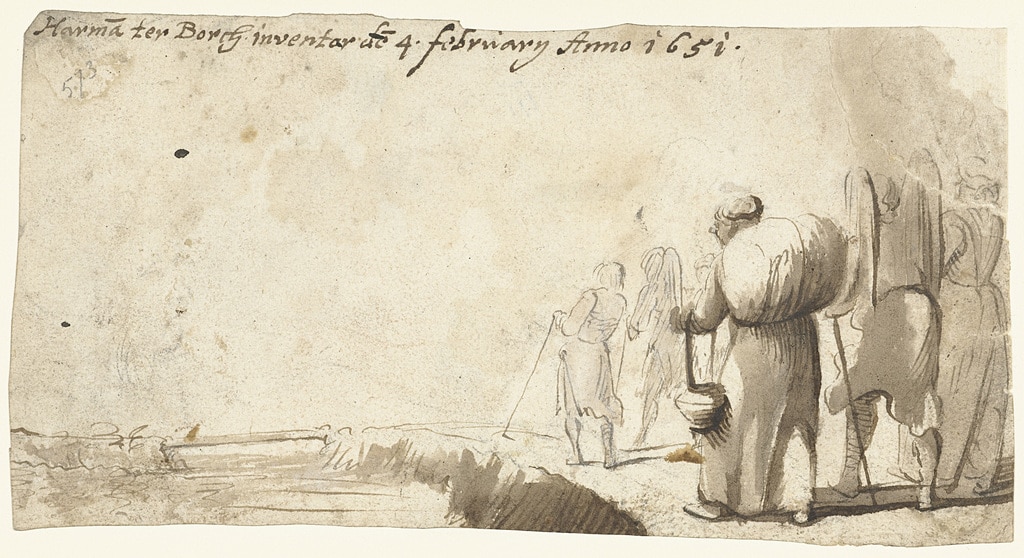 Harmã ter Borch inventor dẽ 4. februarij Anno 1651.
573